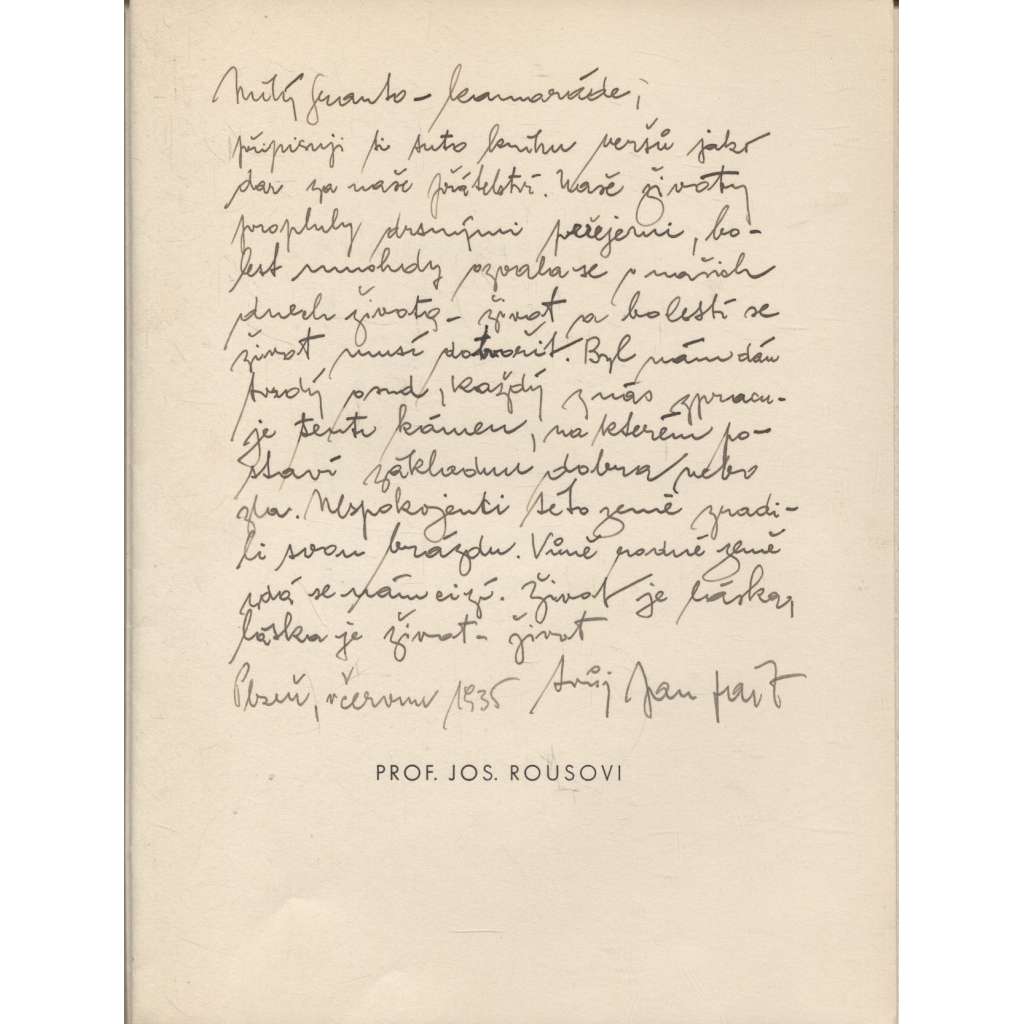 Milý Guanto - kamaráde,
připisuji ti tuto knihu veršů jako
dar za naše přátelství. Naše životy
propluly drsnými peřejemi, bo-
lest mnohdy ozvala se v našich
dnech života - život a bolestí se
život musí dotvořit. Byl nám dán
tvrdý osud, každý z nás zpracu-
je tento kámen, na kterém po-
staví základnu dobra nebo
zla. Nespokojenci této země zradi-
li svou brázdu. Vůně rodné země
zdá se nám cizí. Život je láska,
láska je život - život
Plzeň, v červnu 1935 tvůj Jan
PROF. JOS. ROUSOVI